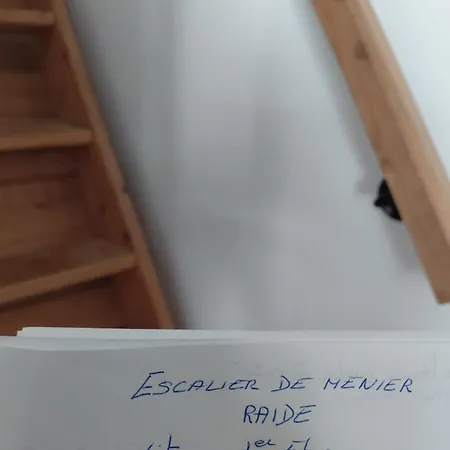 ESCALIER DE MENIER
RAIDE
1er